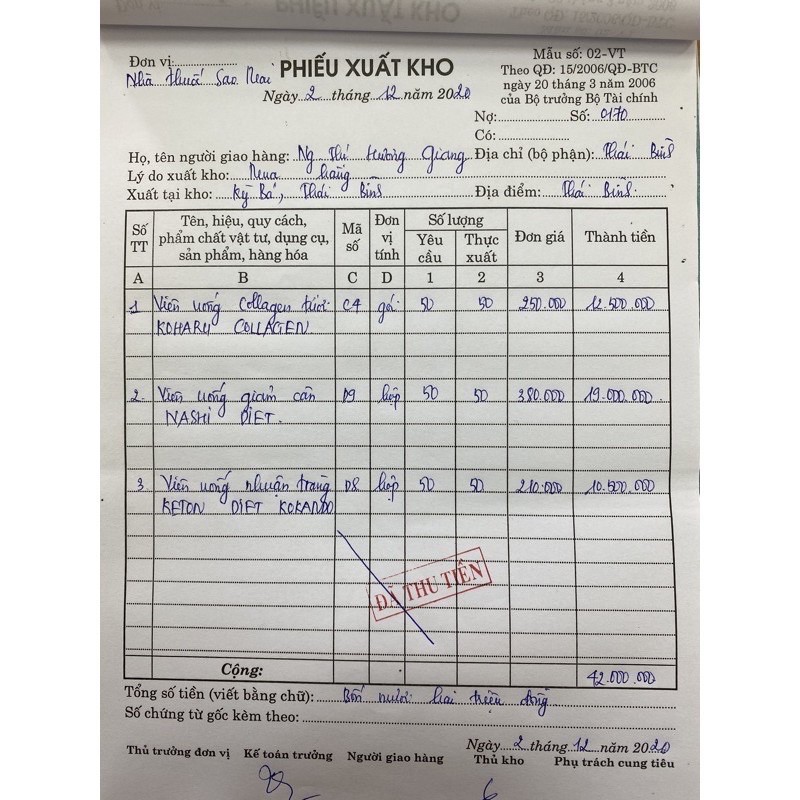 Đơn vị: Nhà thuốc Sao Mai
PHIẾU XUẤT KHO
Ngày 2 tháng 12 năm 2020
Mẫu số: 02-VT
Theo QĐ: 15/2006/QĐ-BTC
ngày 20 tháng 3 năm 2006
của Bộ trưởng Bộ Tài chính
Nợ: Số: 0170
Có:
Họ, tên người giao hàng: Ng Thị Hương Giang Địa chỉ (bộ phận): Thái Bình
Lý do xuất kho: Mua hàng
Xuất tại kho: Kỳ Bá, Thái Bình Địa điểm: Thái Bình.
Số TT Tên, hiệu, quy cách, phẩm chất vật tư, dụng cụ, sản phẩm, hàng hóa Mã số Đơn vị tính Số lượng Yêu cầu Thực xuất Đơn giá Thành tiền
A B C D 1 2 3 4
1 Viên uống Collagen tươi C4 gói 50 50 250.000 12.500.000
KOHARU COLLAGEN
2. Viên uống giảm cân D9 hộp 50 50 380.000 19.000.000
NASHI DIET.
3 Viên uống nhuận tràng D8 hộp 50 50 210.000 10.500.000
KETON DIET KOKANDO
ĐÃ THU TIỀN
Cộng: 42.000.000
Tổng số tiền (viết bằng chữ): Bốn mươi hai triệu đồng
Số chứng từ gốc kèm theo:
Ngày 2 tháng 12 năm 2020
Thủ trưởng đơn vị Kế toán trưởng Người giao hàng Thủ kho Phụ trách cung tiêu